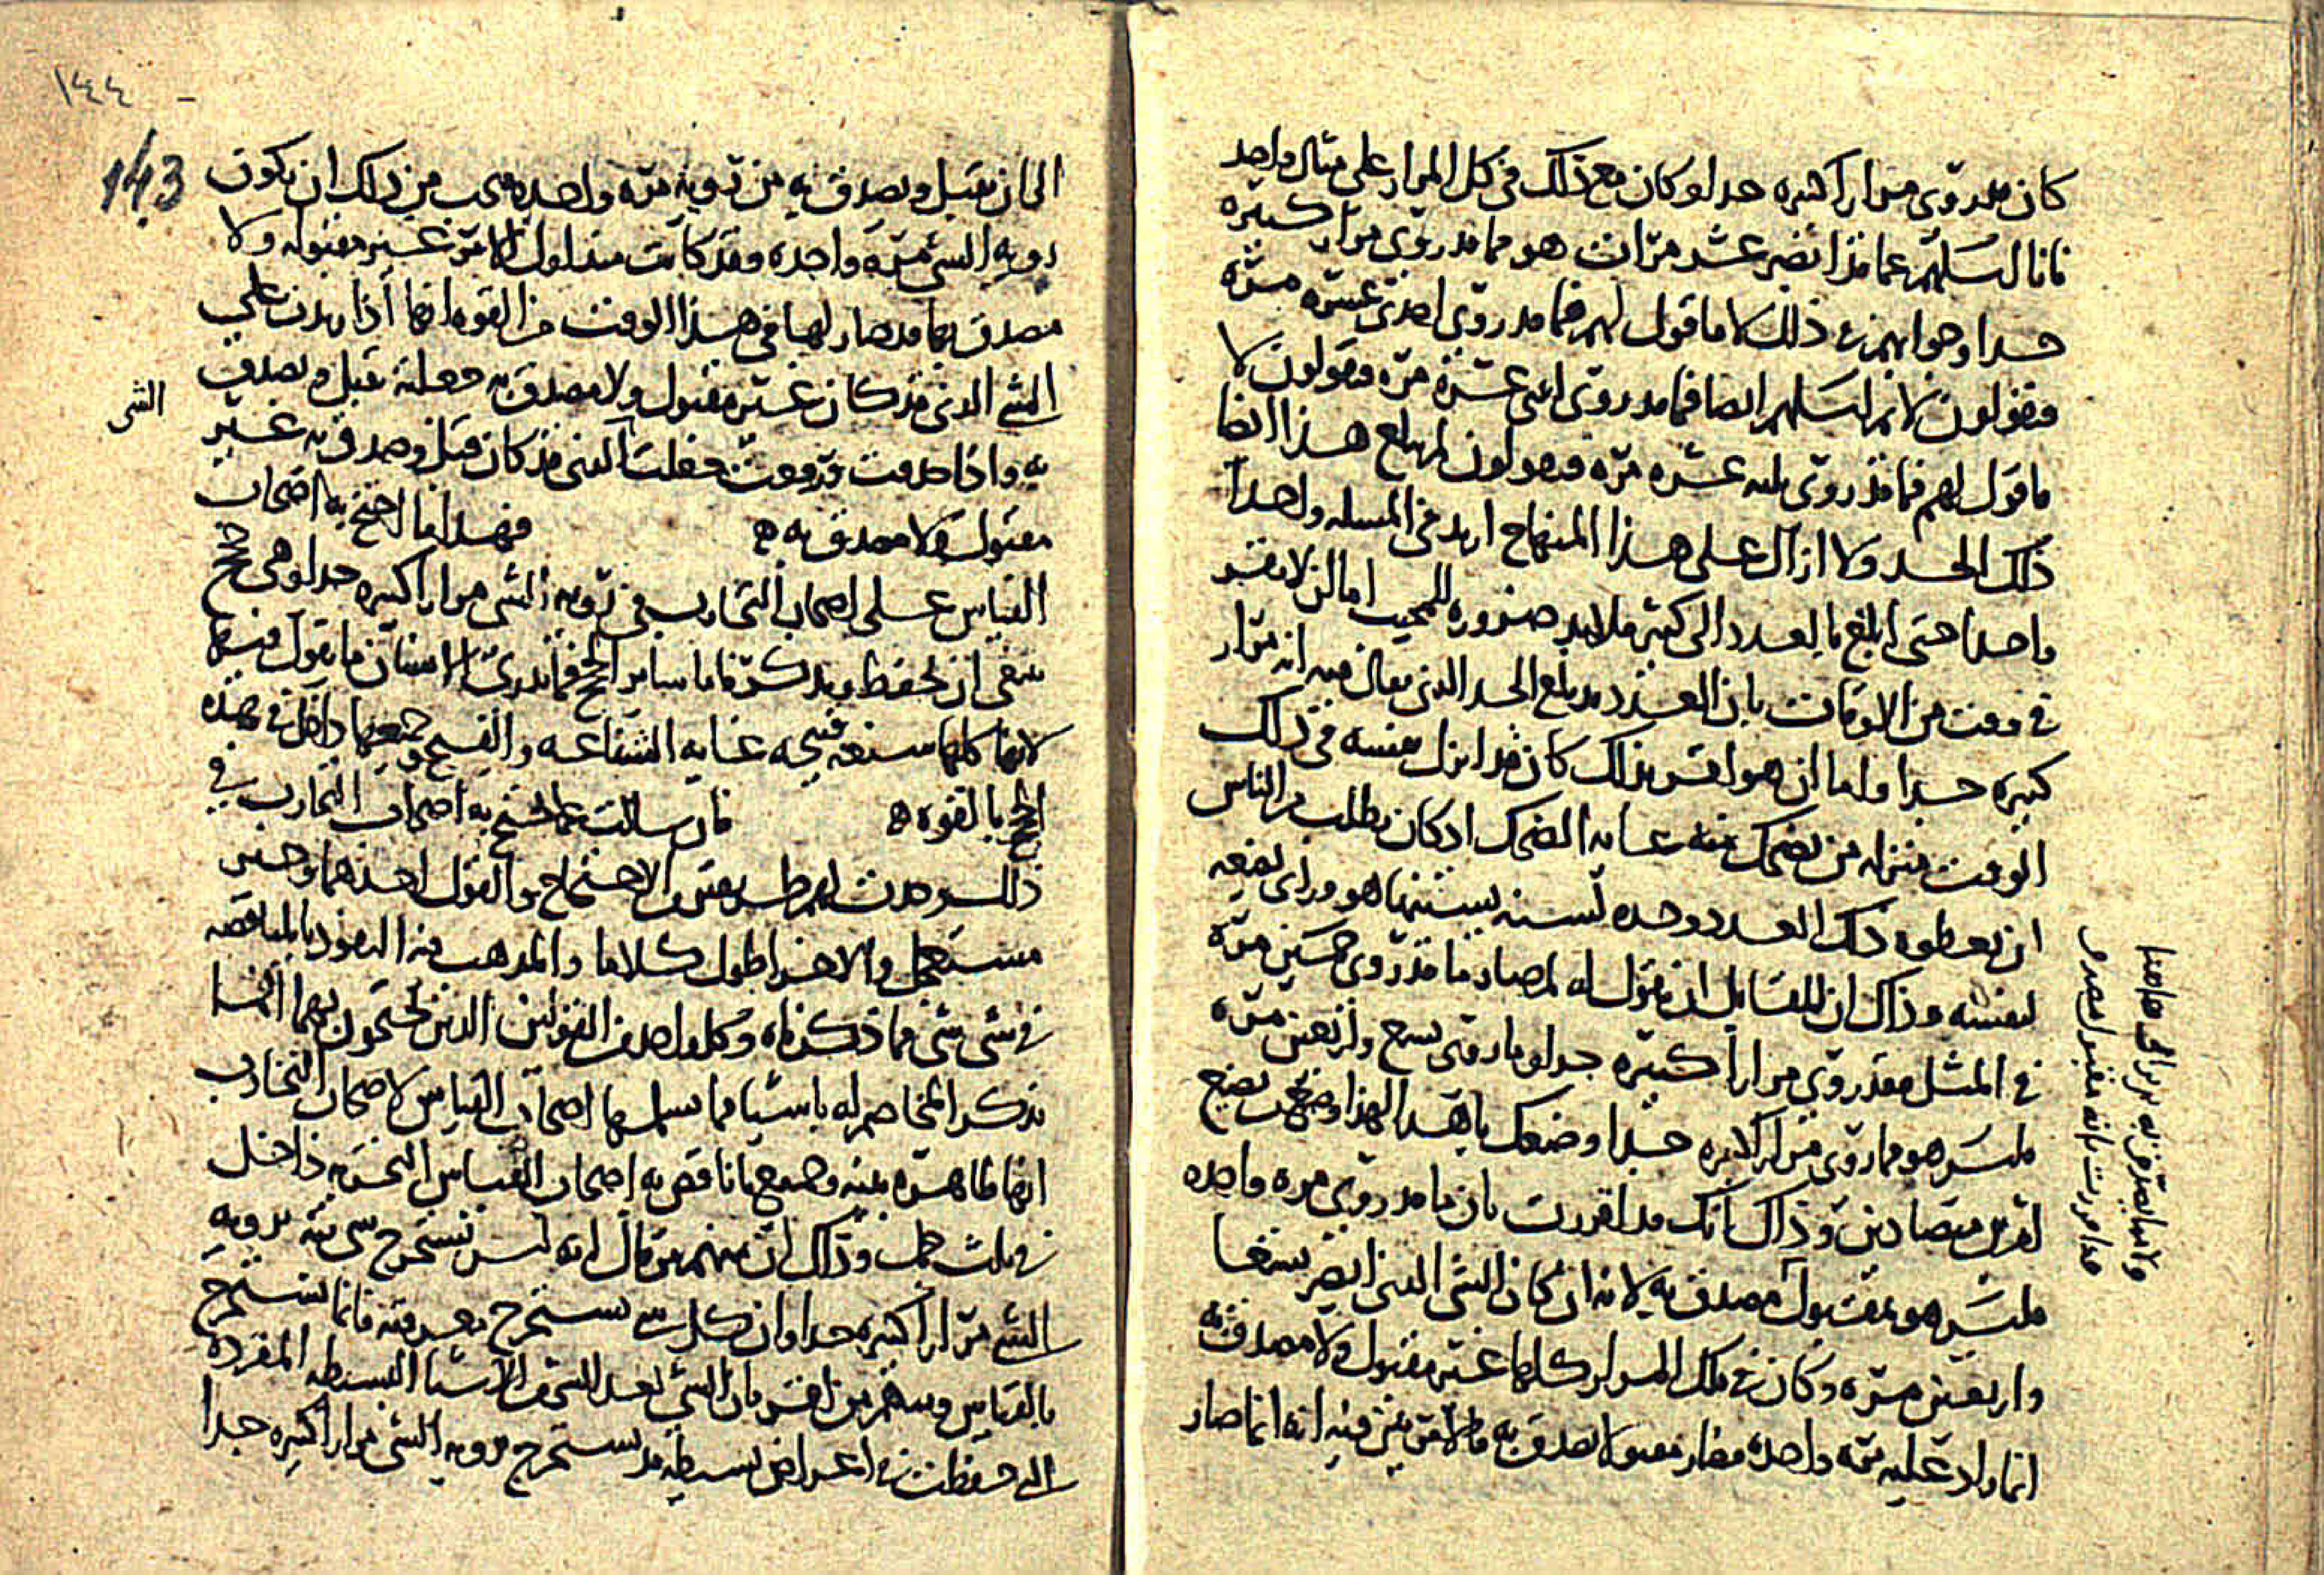 كان قد روي مرارا كثيره جدا وكان مع ذلك في كل المرار على مثال واحد
فانا اسلهم عما قد ابصر عشر مرات هو مما قد روي مرار كثيره
جدا وجوابهم في ذلك لا فاقول لهم فما قد روي احدى عشره مره
فيقولون لا ثم اسلهم ايضا فما قد روي اثنى عشره مره فيقولون لا
فاقول لهم فما قد روي ثلثه عشره مره فيقولون لم يبلغ هذا ايضا
ذلك الحد ولا ازال على هذا المنهاج ازيد في المسله واحدا
واحدا حتى ابلغ بالعدد الى كثير فلا بد ضروره للمجيب اما ان لا يقر
في وقت من الاوقات بان العدد قد بلغ الحد الذي يقال فيه انه مرار
كثيره جدا واما ان هو اقر بذلك كان قد انزل نفسه في ذلك
الوقت منزله من يضحك منه غايه الضحك اذ كان يطلب من الناس
ان يعطوه ذلك العدد وحده لسنه يستنها هو وراى يضعه
لنفسه وذلك ان للقايل ان يقول له لم صار ما قد روي خمسين مره
في المثل فقد روي مرارا كثيره جدا وما روي تسع واربعين مره
فليس هو مما روي مرارا كثيره جدا وضعك يا هذا لهذا وضع من يضع
امرين متضادين وذلك انك قد اقررت بان ما قد روي مره واحده
فليس هو بمقبول مصدق به لانه ان كان الشي الذي ابصر تسعا
واربعين مره وكان في تلك المرار كلها غير مقبول ولا مصدق به
انما زاد عليه مره واحده فصار مقبولا يصدق به فالامر بين فيه انه انما صار
ولا مما يصدق به
قد اقررت بانه مقبول مصدق
١٤٤
143
الى ان يقبل ويصدق به من رويه مره واحده فيجب من ذلك ان يكون
رويه الشي مره واحده وقد كانت منذ اول الامر غير مقبوله ولا
مصدق بها قد صار لها في هذا الوقت من القوه انها اذا زيدت على
الشي الذي قد كان غير مقبول ولا مصدق به جعلته يقبل ويصدق
الشي
به واذا رفعت جعلت الذي قد كان قبل وصدق به غير
مقبول ولا مصدق به ه فهذا ما احتج به اصحاب
القياس على اصحاب التجارب في رويه الشي مرارا كثيره جدا وهي حجج
ينبغي ان تحفظ وتذكر فاما ساير الحجج فما يدري الانسان ما يقول فيها
لانها كلها شنعه قبيحه غايه الشناعه والقبح وجميعها داخل في هذه
الحجج بالقوه ه فان سالت عما احتج به اصحاب التجارب في
ذلك وجدت لهم طريقين من الاحتجاج والقول احدهما وجيز
مستعجل والاخر اطول كلاما والمذهب فيه النقود بالمناقضه
في شي شي مما ذكرناه وكل واحد من القولين الذين يحتجون بهما انما
يذكر المخاصم له باشيا مما يسلمها اصحاب القياس لاصحاب التجارب
انها ظاهره بينه وجميع ما ناقض به اصحاب القياس التجربه داخل
في ثلث جمل وذلك ان منهم من قال انه ليس يستخرج شي بته برويه
الشي مرارا كثيره جدا وان كل شي يستخرج بعد وقته فانما يستخرج
بالقياس ومنهم من اقر بان الشي بعد الشي من الاشيا البسيطه المفرده
التي حفظت في اعراض بسيطه قد يستخرج برويه الشي مرارا كثيره جدا